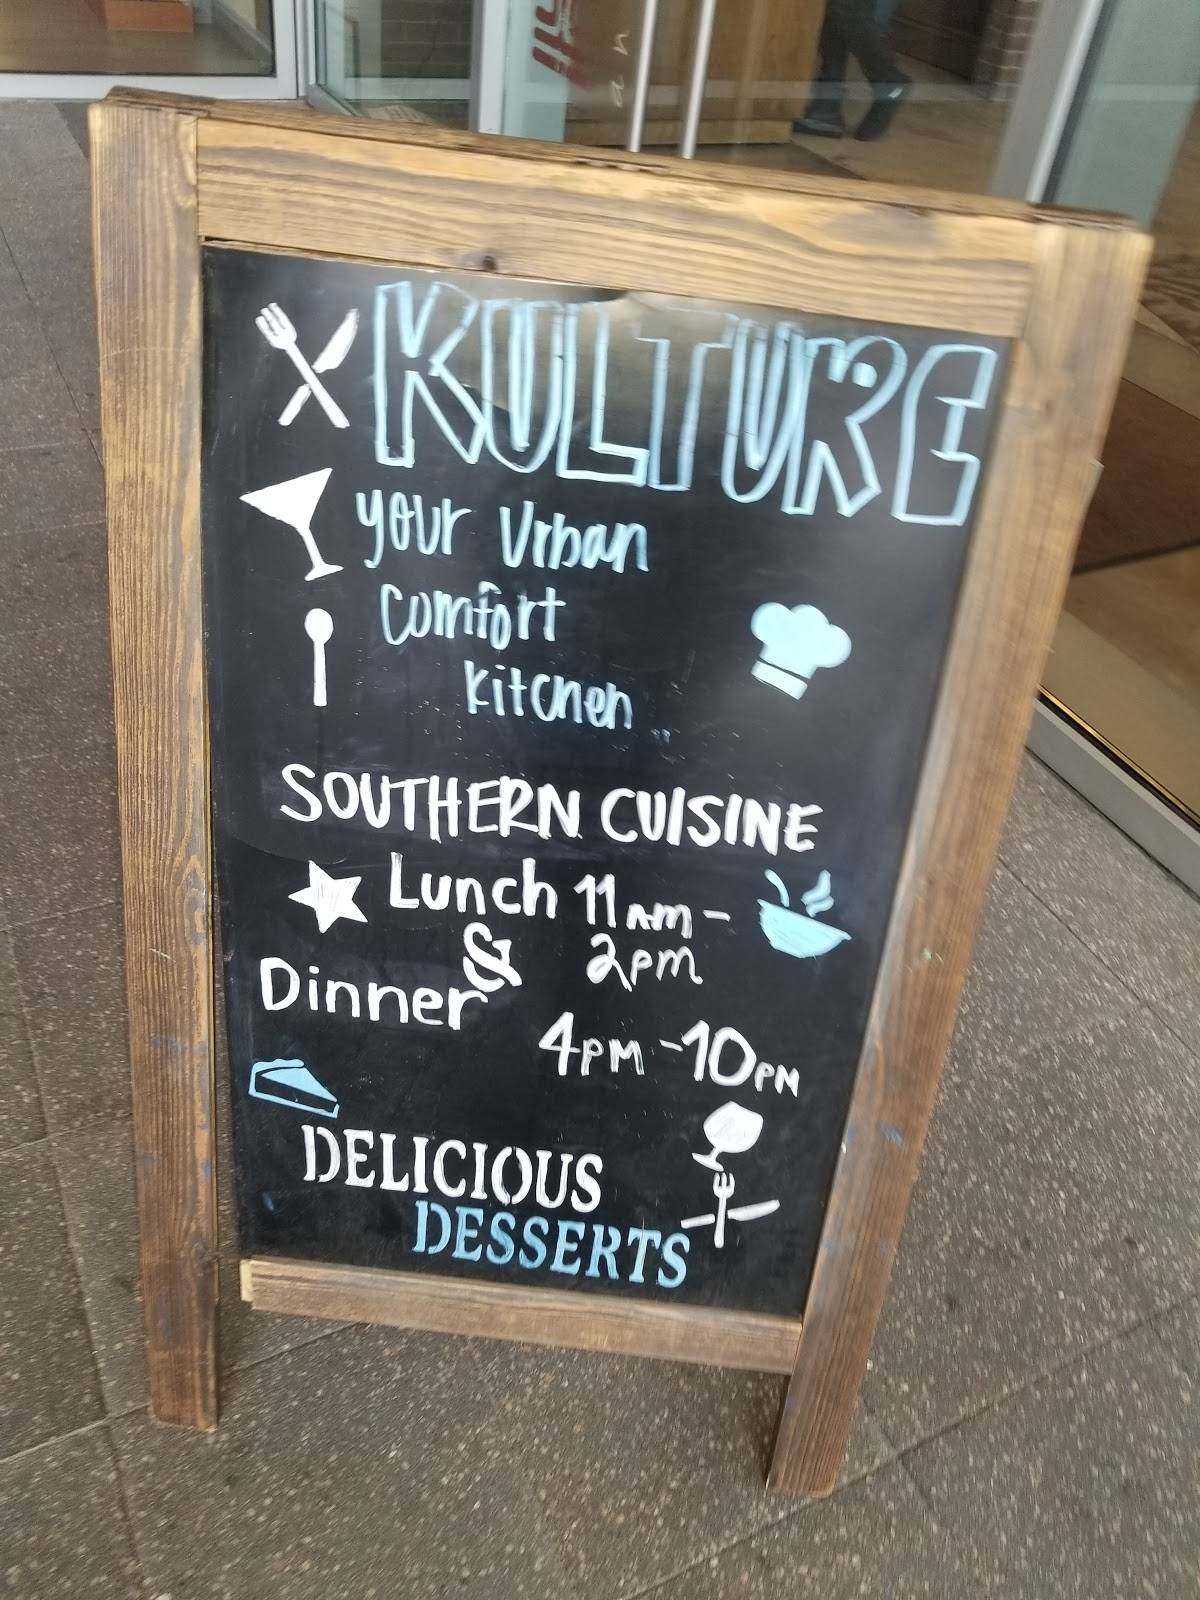 KULTURE
your Urban
comfort
kitchen
SOUTHERN CUISINE
Lunch 11AM-
& 2pm
Dinner
4PM-10PM
DELICIOUS
DESSERTS